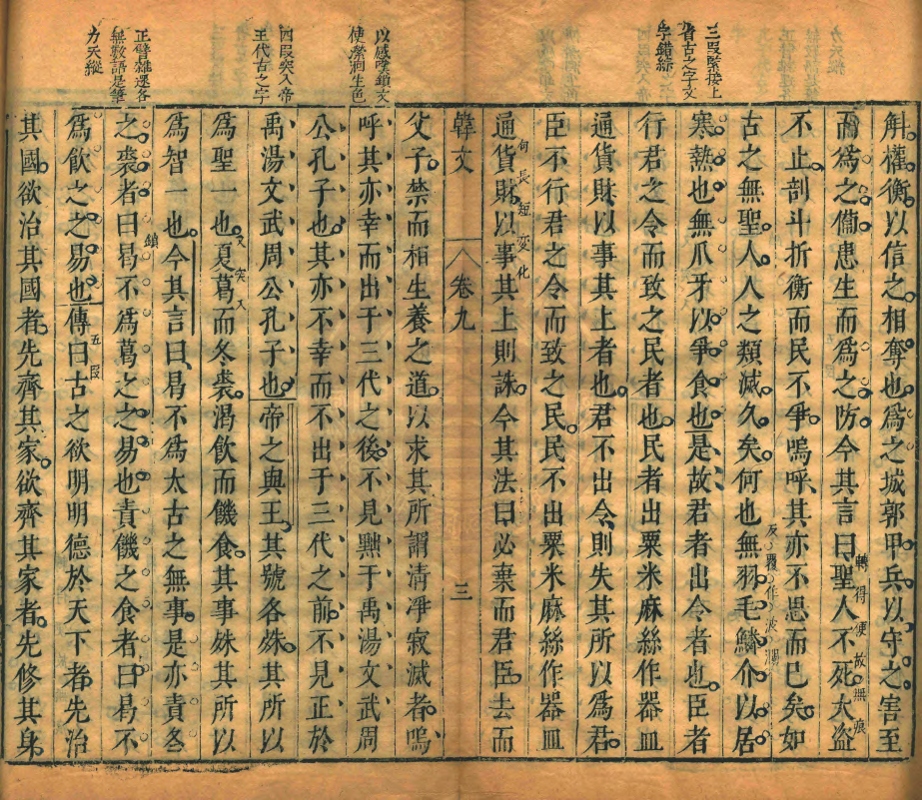 三段緊接上
省古之字文
字錯綜
斛權衡以信之相奪也爲之城郭甲兵以守之害至
而爲之備患生而爲之防今其言曰聖人不死大盜
轉得便故無痕
不止剖斗折衡而民不爭嗚呼其亦不思而已矣如
古之無聖人人之類滅久矣何也無羽毛鱗介以居
反覆作波瀾
寒熱也無爪牙以爭食也是故君者出令者也臣者
行君之令而致之民者也民者出粟米麻絲作器皿
通貨財以事其上者也君不出令則失其所以爲君
臣不行君之令而致之民民不出粟米麻絲作器皿
句長短変化
通貨財以事其上則誅今其法曰必棄而君臣去而
韓文
卷九
三
以感嘆鎖文
使瀠洄生色
四段突入帝
王代古之字
正譬雜遝各
無數語是筆
力天縱
父子禁而相生養之道以求其所謂清凈寂滅者嗚
呼其亦幸而出于三代之後不見黜于禹湯文武周
公孔子也其亦不幸而不出于三代之前不見正於
禹湯文武周公孔子也帝之與王其號各殊其所以
爲聖一也夏葛而冬裘渴飲而饑食其事殊其所以
又突入
爲智一也今其言曰曷不爲太古之無事是亦責冬
之裘者曰曷不爲葛之之易也責饑之食者曰曷不
鎖
爲飲之之易也傳曰古之欲明明德於天下者先治
五段
其國欲治其國者先齊其家欲齊其家者先修其身